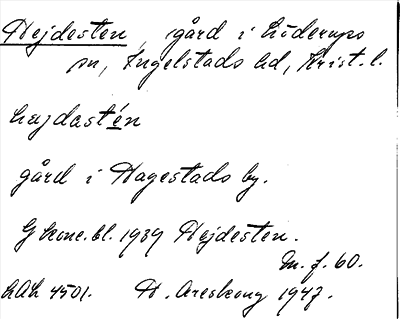 Hejdesten, gård i Löderups
sn, Ingelstads hd, Krist. l.
hajdastén
gård i Hagestads by.
G kone. bl. 1939 Hejdesten.
m. f. 60.
LAL 4501. H. Areskoug 1947.